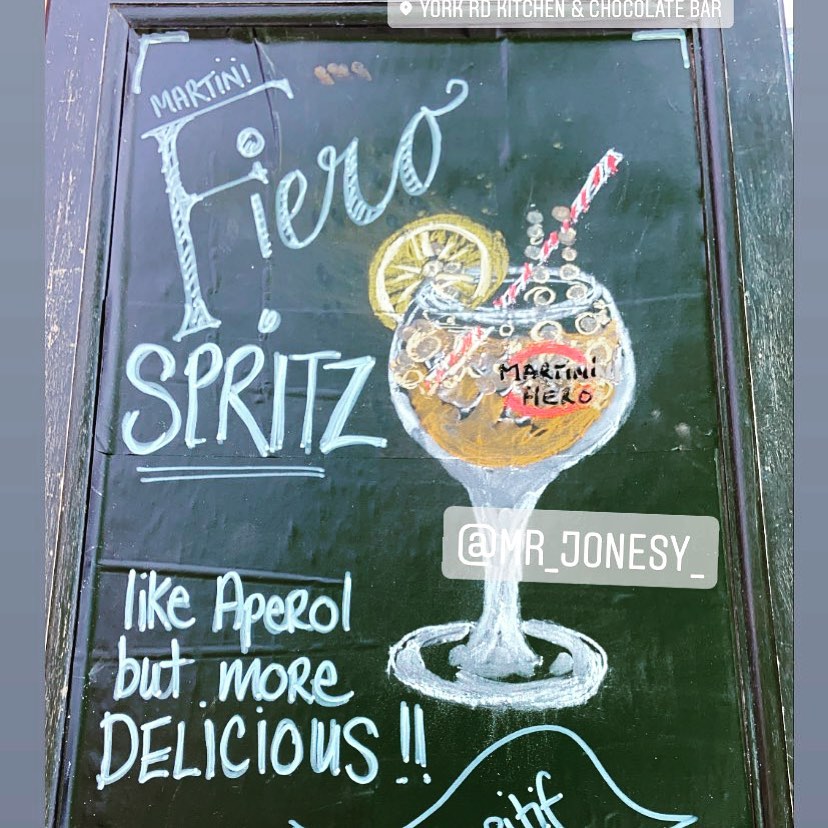 YORK RD KITCHEN & CHOCOLATE BAR
MARTINI
Fiero
SPRITZ
MARTINI
FIERO
@MR_JONESY_
like Aperol
but more
DELICIOUS!!